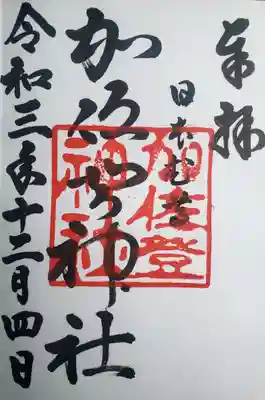 奉拝
日本武尊
加佐登神社
加佐登神社
令和三年十二月四日